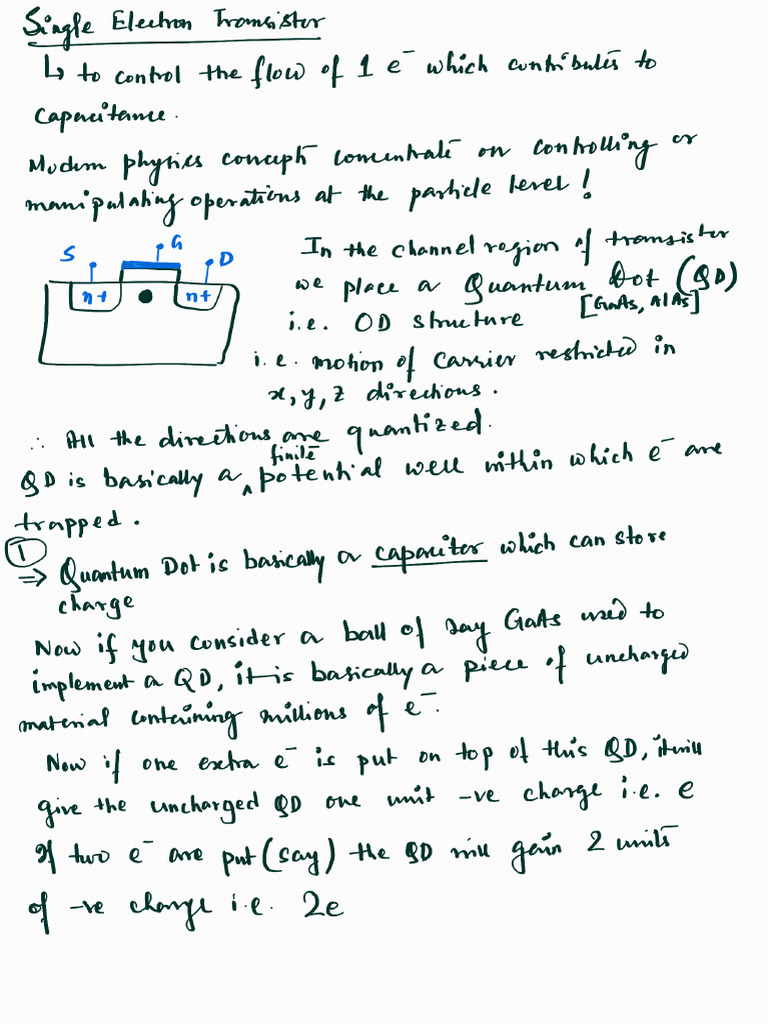 Single Electron Transistor
↳ to control the flow of 1 e⁻ which contributes to
capacitance.
Modern physics concept concentrate on controlling or
manipulating operations at the particle level!
S G D
n+ n+
In the channel region of transistor
we place a Quantum Dot (QD)
[GaAs, AlAs]
i.e. OD structure
i.e. motion of carrier restricted in
x, y, z directions.
∴ All the directions are quantized.
QD is basically a finite potential well within which e⁻ are
trapped.
①
⇒ Quantum Dot is basically a capacitor which can store
charge
Now if you consider a ball of say GaAs used to
implement a QD, it is basically a piece of uncharged
material containing millions of e⁻.
Now if one extra e⁻ is put on top of this QD, it will
give the uncharged QD one unit -ve charge i.e. e
If two e⁻ are put (say) the QD will gain 2 units
of -ve charge i.e. 2e